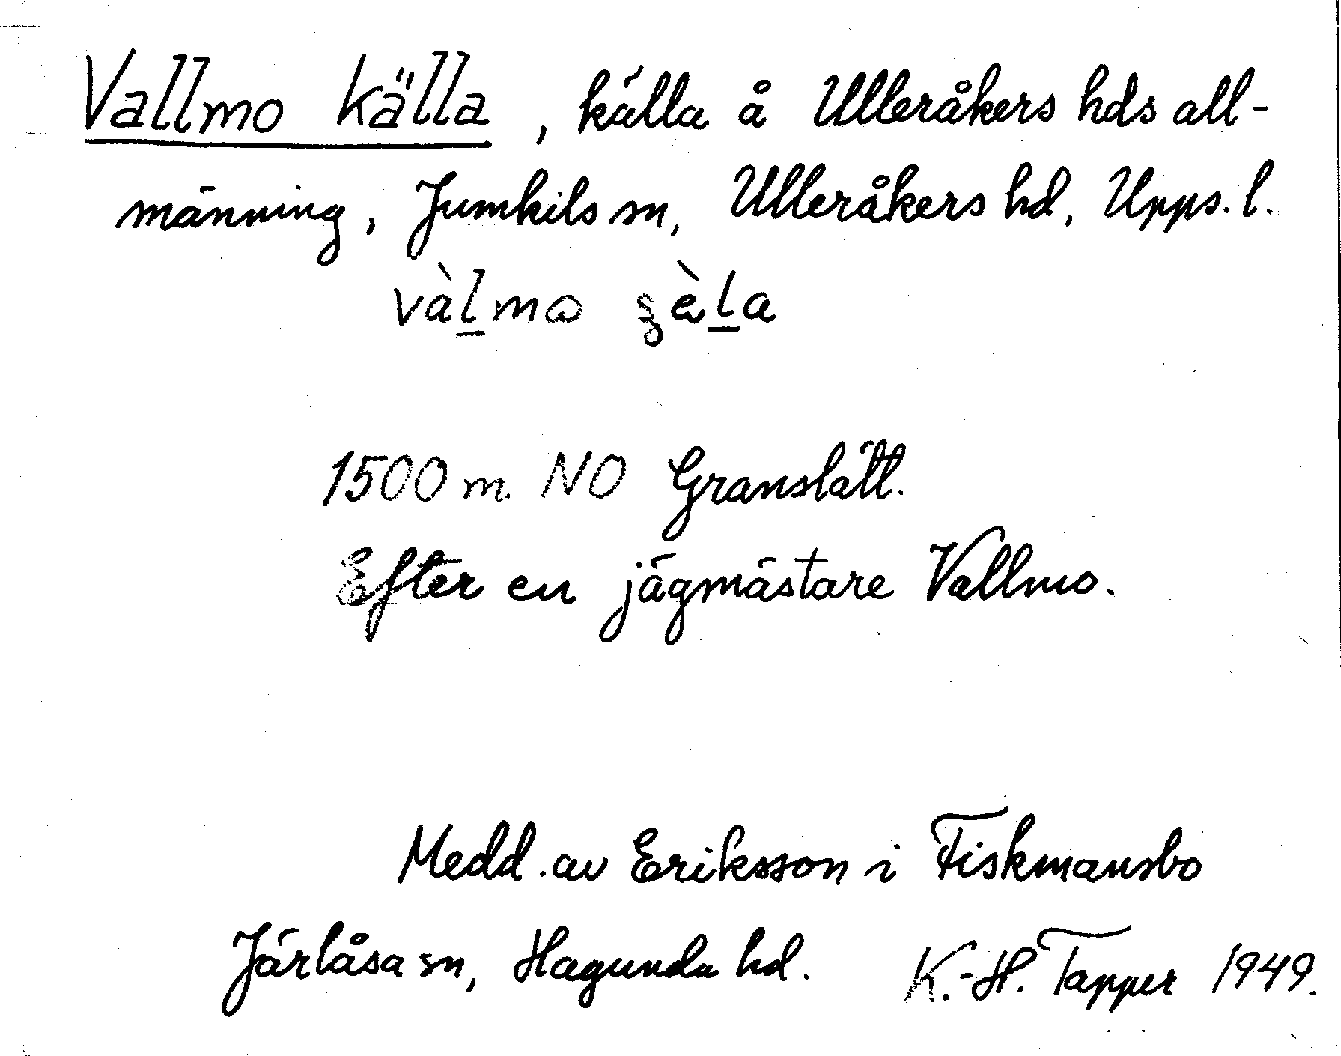 Vallmo källa, källa å Ulleråkers hds all-
männing, Jumkils sn, Ulleråkers hd, Upps. l.
vàlmo ʂèla
1500 m. NO Granslätt.
Efter en jägmästare Vallmo.
Medd. av Eriksson i Fiskmansbo
Järlåsa sn, Hagunda hd. K.-H. Tapper 1949.